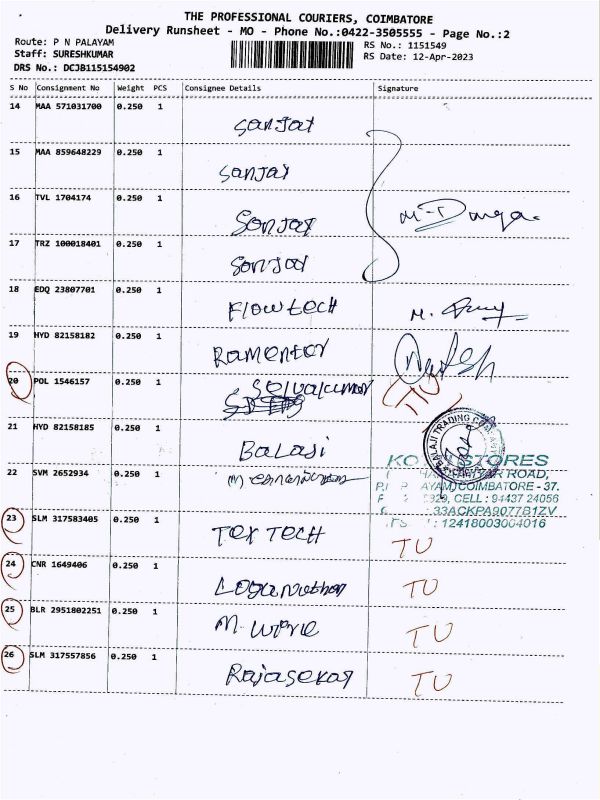 THE PROFESSIONAL COURIERS, COIMBATORE
Delivery Runsheet - MO - Phone No.:0422-3505555 - Page No.:2
Route: P N PALAYAM
Staff: SURESHKUMAR
DRS No.: DCJB115154902
RS No.: 1151549
RS Date: 12-Apr-2023
S No Consignment No Weight PCS Consignee Details Signature
14 MAA 571031700 0.250 1 Sanjay
15 MAA 859648229 0.250 1 Sanjay
16 TVL 1704174 0.250 1 Sonjay M-Durga.
17 TRZ 100018401 0.250 1 Sonjay
18 EDQ 23807701 0.250 1 Flowtech M.
19 HYD 82158182 0.250 1 Ramenter
20 POL 1546157 0.250 1 Selvakumar TU
21 HYD 82158185 0.250 1 Balaji
BALAJI TRADING
STORES
22 SVM 2652934 0.250 1
ROAD,
COIMBATORE - 37.
CELL : 94437 24056
33ACKPA9077B1ZV
: 12418003004016
23 SLM 317583405 0.250 1 Tex Tech TU
24 CNR 1649406 0.250 1 Loganathan TU
25 BLR 2951802251 0.250 1 M. TU
26 SLM 317557856 0.250 1 Rajasekar TU